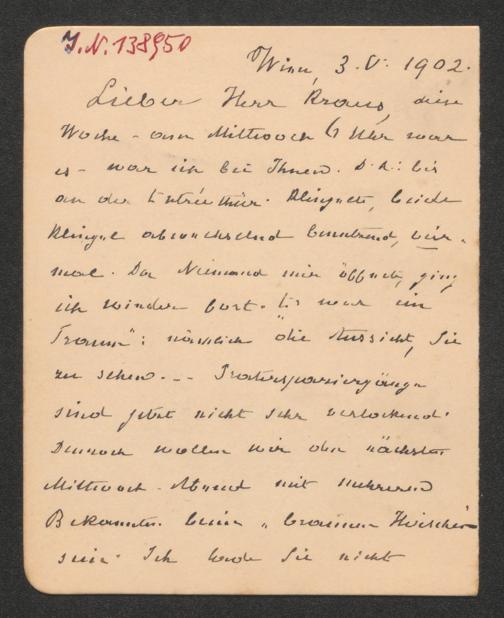 J.N. 138950
Wien, 3. V. 1902.
Lieber Herr Kraus, diese
Woche - am Mittwoch 6 Uhr war
es - war ich bei Ihnen. D. h.: bis
an die Entréethür. Klingelte, beide
Klingel abwechselnd benutzend, vier-
mal. Da Niemand mir öffnete, ging
ich wieder fort. Es war „ein
Traum": nämlich die Aussicht, Sie
zu sehen. -- Praterspaziergänge
sind jetzt nicht sehr verlockend.
Dennoch wollen wir den nächsten
Mittwoch-Abend mit mehreren
Bekannten beim „braunen Hirschen"
sein. Ich lade Sie nicht